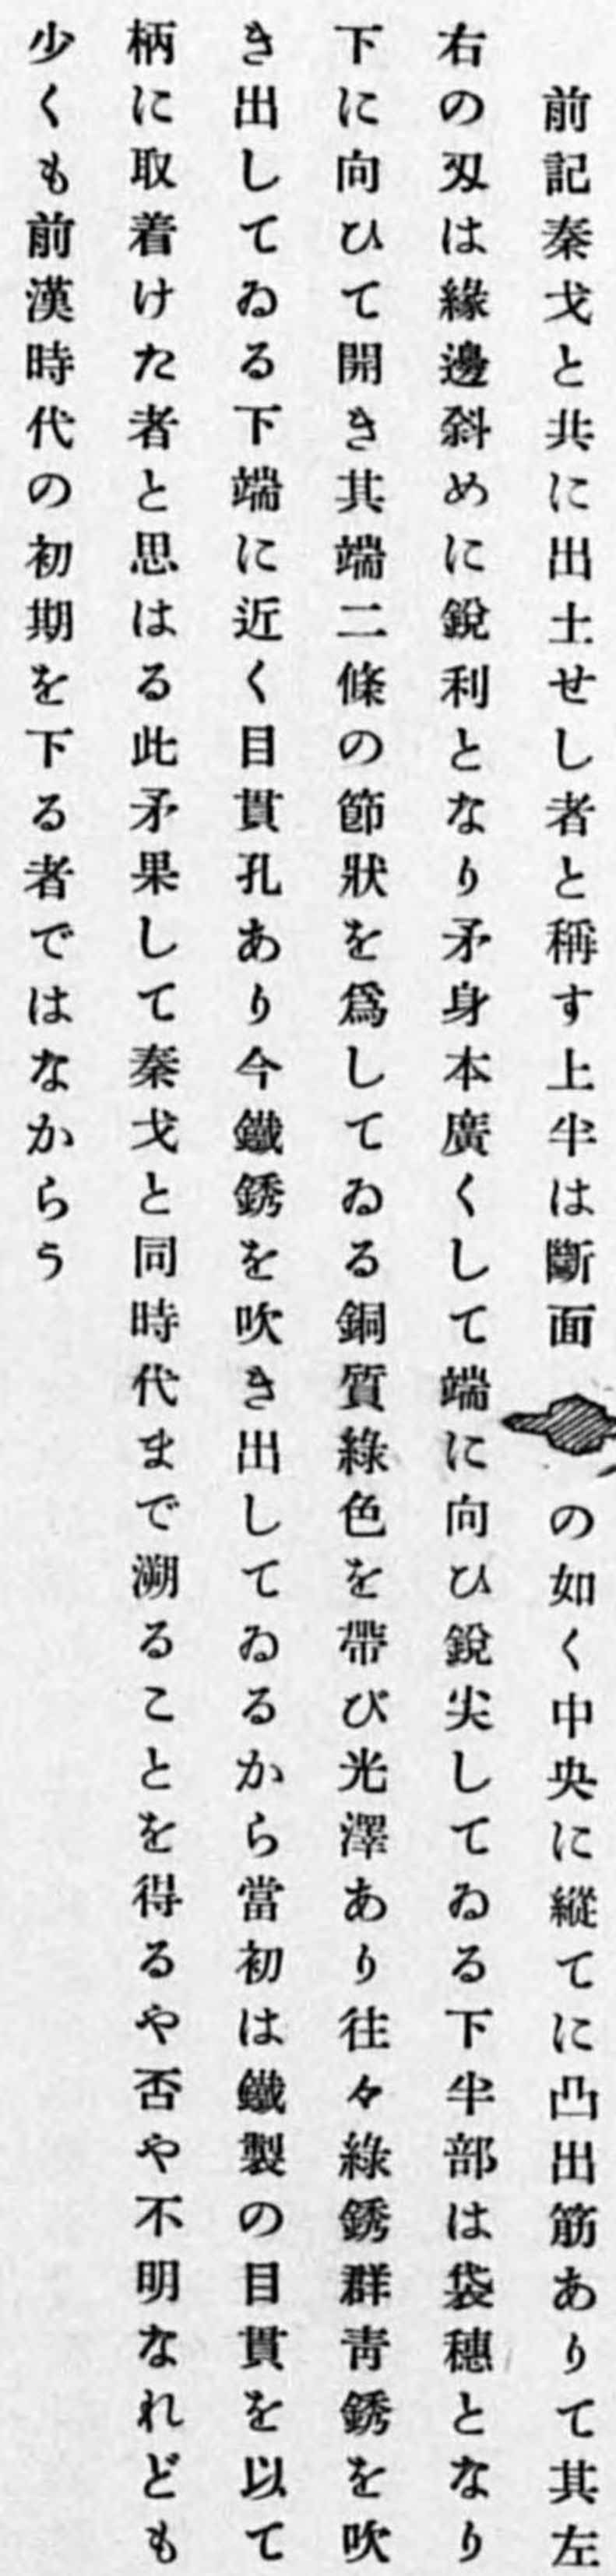 前記秦戈と共に出土せし者と稱す上半は斷面の如く中央に縱てに凸出筋ありて其左
右の刄は緣邊斜めに銳利となり矛身本廣くして端に向ひ銳尖してゐる下半部は袋穗となり
下に向ひて開き其端二條の節狀を爲してゐる銅質綠色を帶び光澤あり往々綠銹群靑銹を吹
き出してゐる下端に近く目貫孔あり今鐵銹を吹き出してゐるから當初は鐵製の目貫を以て
柄に取着けた者と思はる此矛果して秦戈と同時代まで溯ることを得るや否や不明なれども
少くも前漢時代の初期を下る者ではなからう